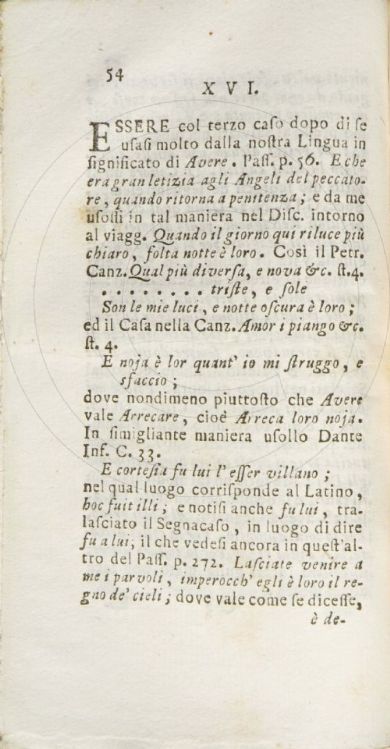 54
XVI.
ESSERE col terzo caso dopo di se
usasi molto dalla nostra Lingua in
significato di Avere. Pass. p. 56. E che
era gran letizia agli Angeli del peccato-
re, quando ritorna a penitenza; e da me
usossi in tal maniera nel Disc. intorno
al viagg. Quando il giorno qui riluce più
chiaro, folta notte è loro. Così il Petr.
Canz. Qual più diversa, e nova &c. st.4.
. . . . . . . . triste, e sole
Son le mie luci, e notte oscura è loro;
ed il Casa nella Canz. Amor i piango &c.
st. 4.
E noja è lor quant' io mi struggo, e
sfaccio;
dove nondimeno piuttosto che Avere
vale Arrecare, cioè Arreca loro noja.
In simigliante maniera usollo Dante
Inf. C. 33.
E cortesia fu lui l' esser villano;
nel qual luogo corrisponde al Latino,
hoc fuit illi; e notisi anche fu lui, tra-
lasciato il Segnacaso, in luogo di dire
fu a lui; il che vedesi ancora in quest'al-
tro del Pass. p. 272. Lasciate venire a
me i parvoli, imperocch' egli è loro il re-
gno de' cieli; dove vale come se dicesse,
è de-